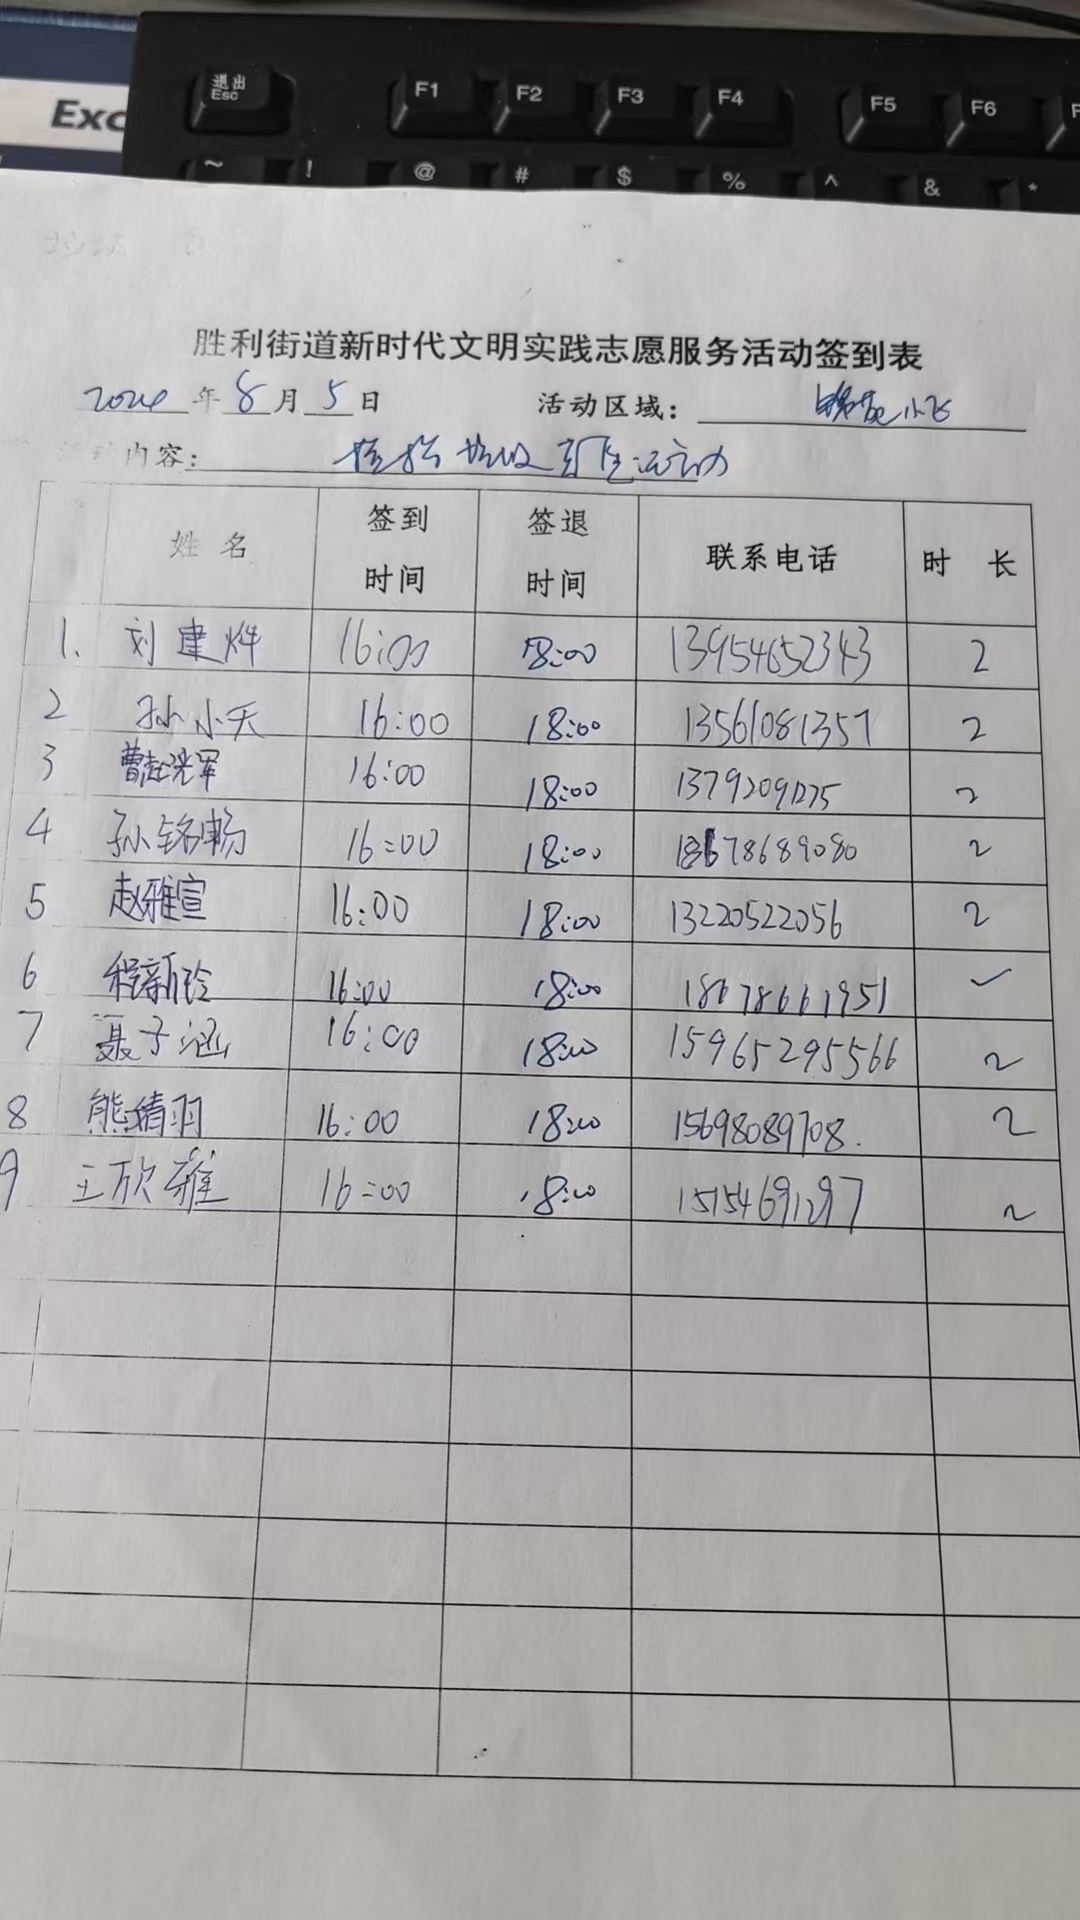 退出
Esc
F1 F2 F3 F4 F5 F6 F
Exc
~ ! @ # $ % ^ & *
胜利街道新时代文明实践志愿服务活动签到表
2024年8月5日 活动区域: 小区
活动内容: 捡拾垃圾 卫生活动
姓名 签到时间 签退时间 联系电话 时长
1. 刘建烨 16:00 18:00 13954652343 2
2 孙小天 16:00 18:00 13561081357 2
3 曹 军 16:00 18:00 2
4 孙铭畅 16:00 18:00 18678689080 2
5 赵雅宣 16:00 18:00 13220522056 2
6 程新玲 16:00 18:00 18678661951
7 聂子涵 16:00 18:00 15965295566 2
8 熊婧羽 16:00 18:00 15698089708. 2
9 王欣雅 16:00 18:00 15154691297 2